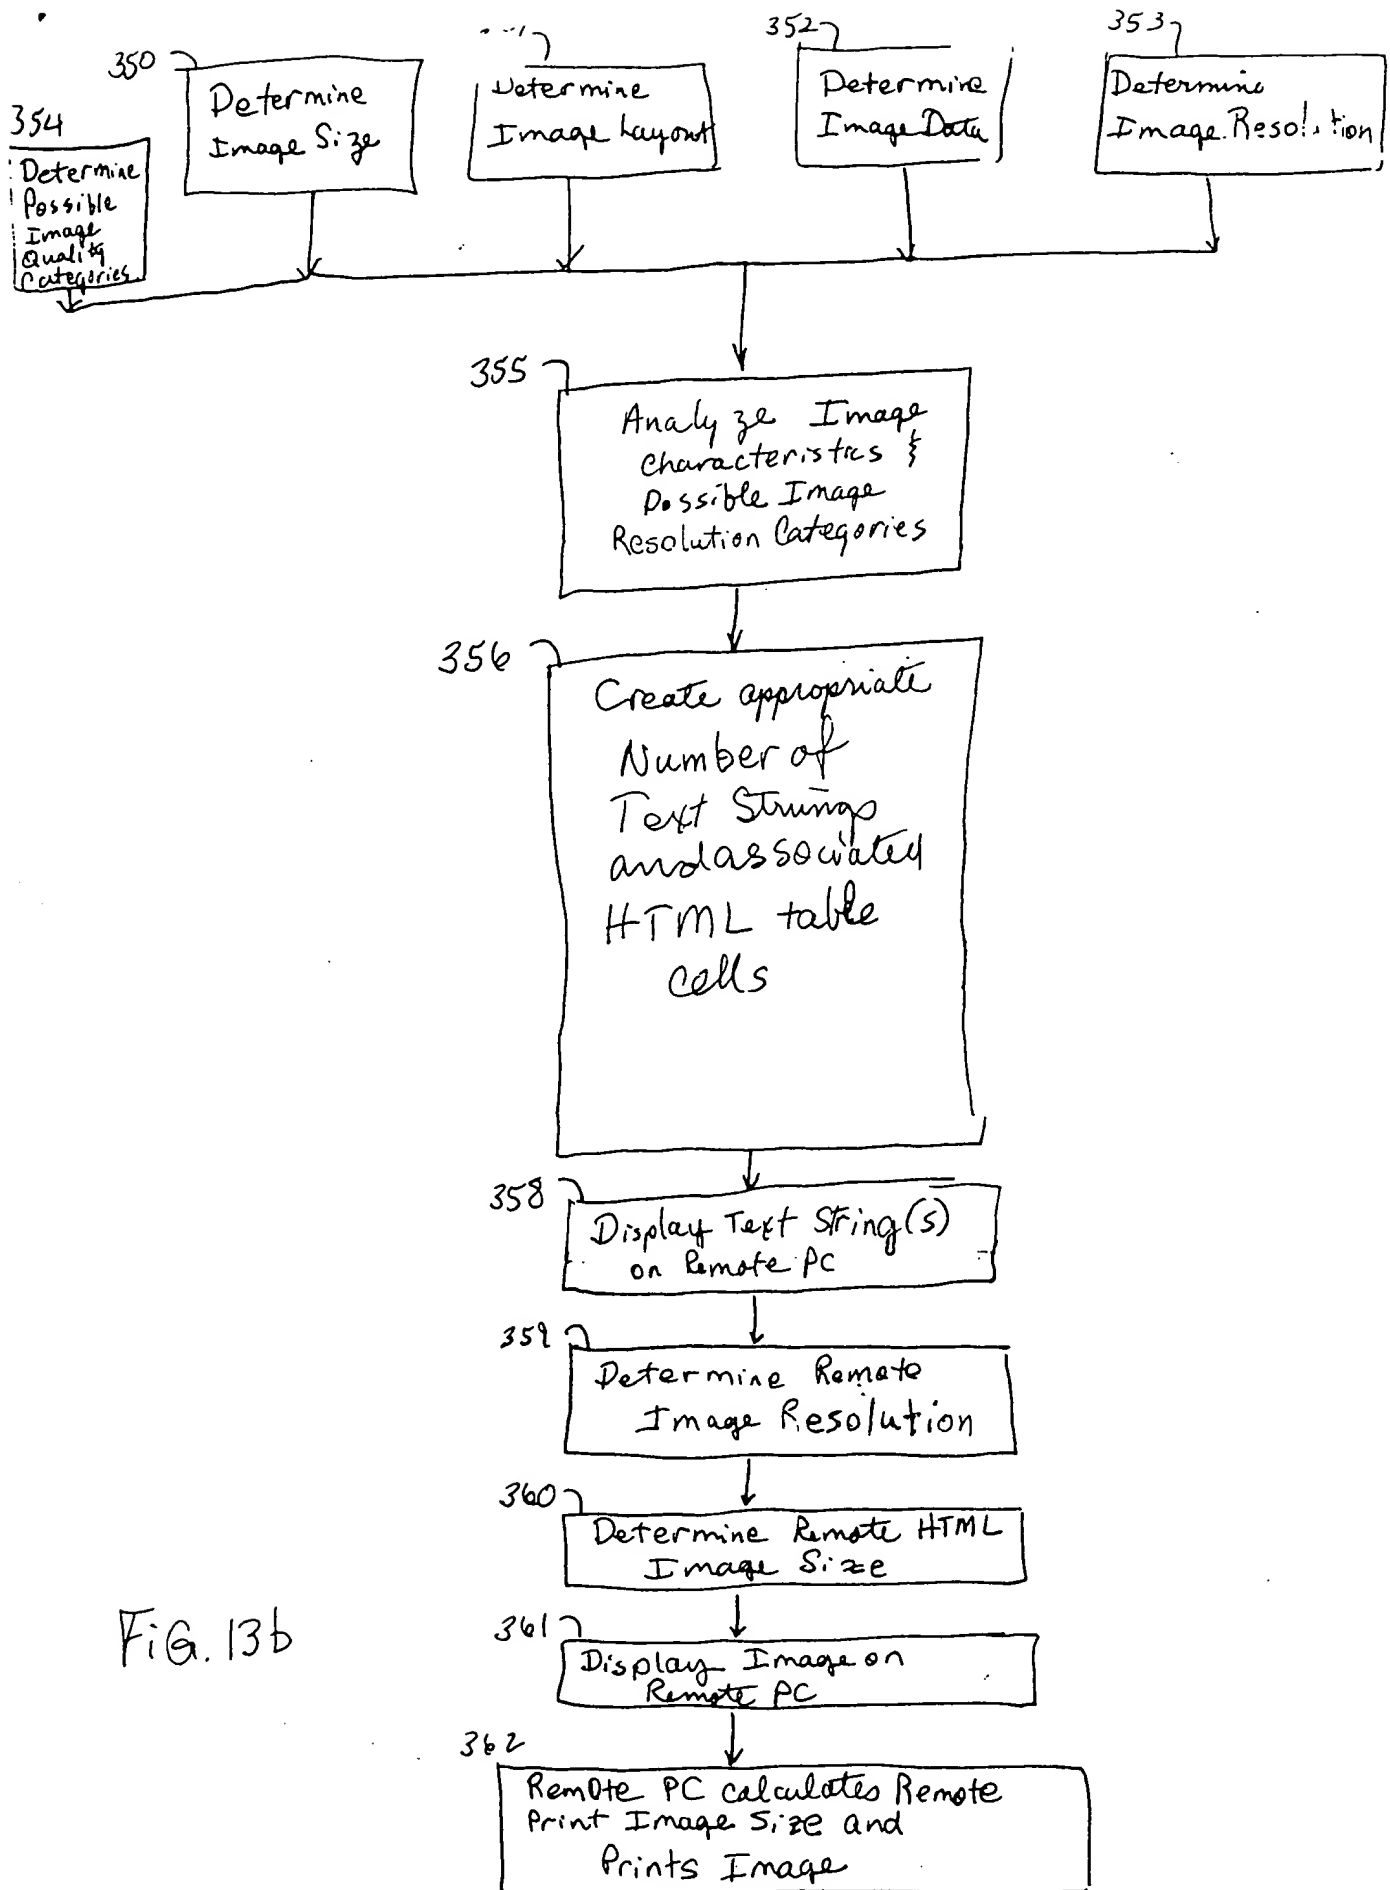 350
Determine
Image Size
Determine
Image Layout
352
Determine
Image Data
353
Determine
Image Resolution
354
Determine
Possible
Image
Quality
Categories
355
Analyze Image
Characteristics &
Possible Image
Resolution Categories
356
Create appropriate
Number of
Text Strings
and associated
HTML table
cells
358
Display Text String(s)
on Remote PC
359
Determine Remote
Image Resolution
360
Determine Remote HTML
Image Size
361
Display Image on
Remote PC
362
Remote PC calculates Remote
Print Image Size and
Prints Image
FiG. 13b